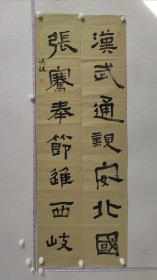 漢武通親安北國
張騫奉節進西岐